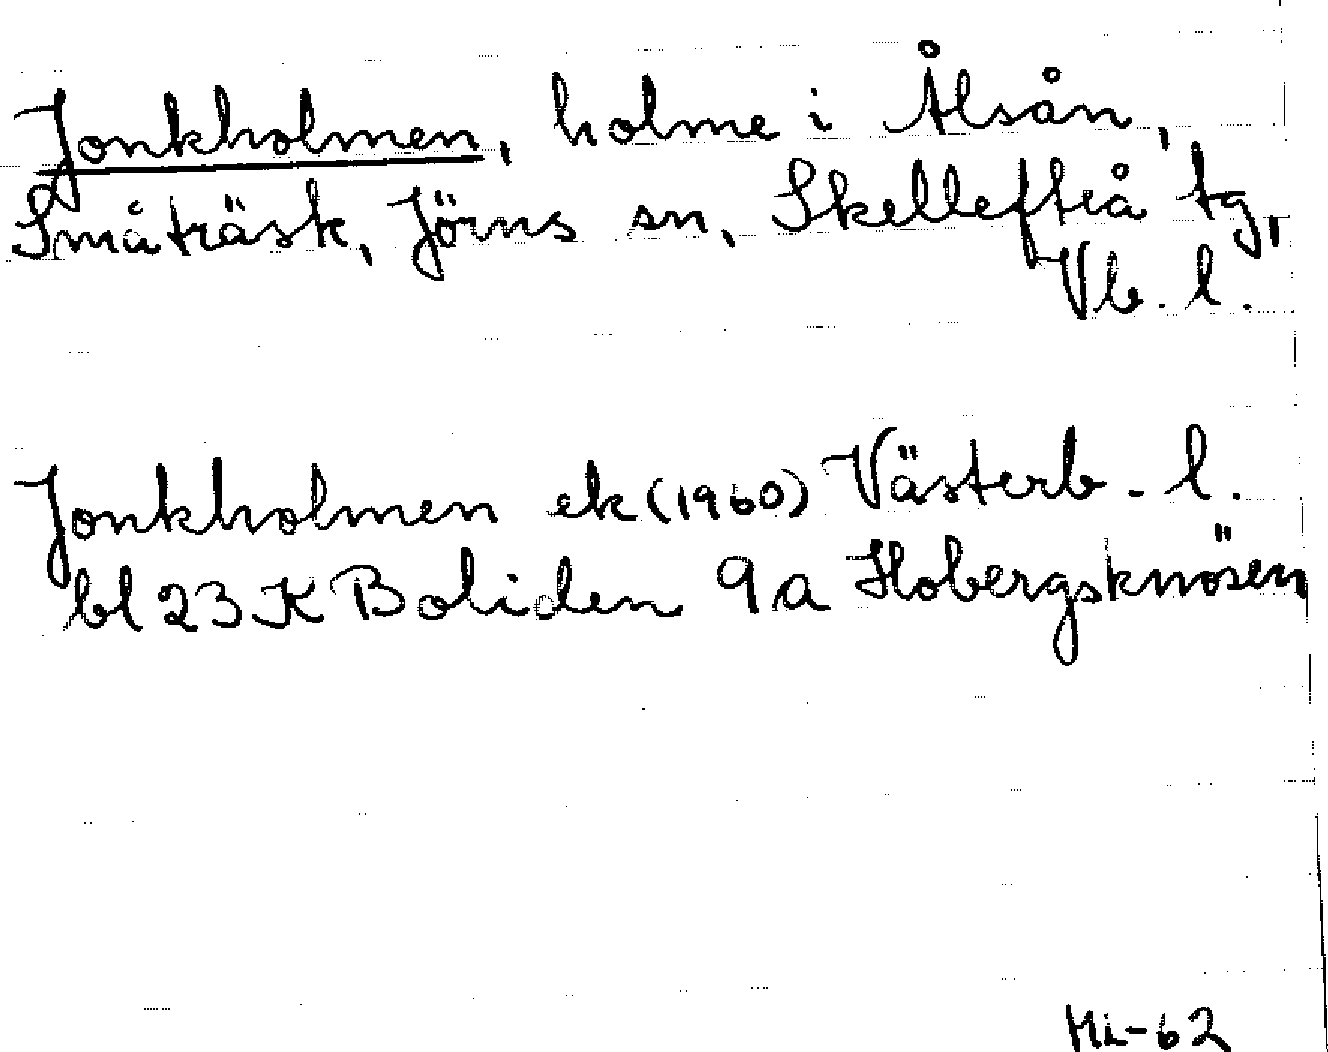 Jonkholmen, holme i Ålsån,
Småträsk, Jörns sn, Skellefteå tg,
Vb. l.
Jonkholmen ek (1960) Västerb. l.
bl 23 K Boliden 9a Hobergsknösen
Hi-62